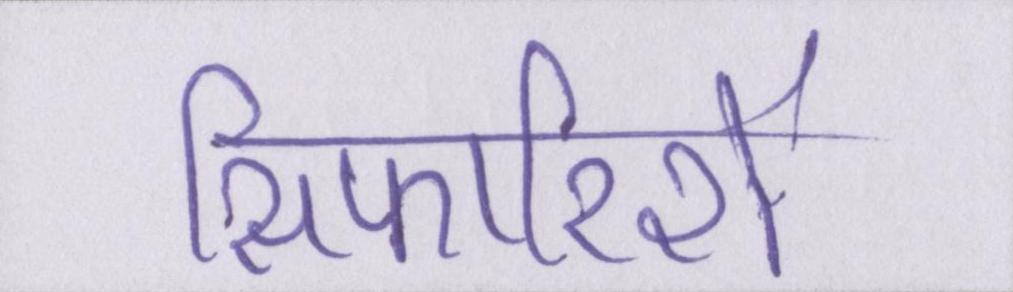 सिफारिशें